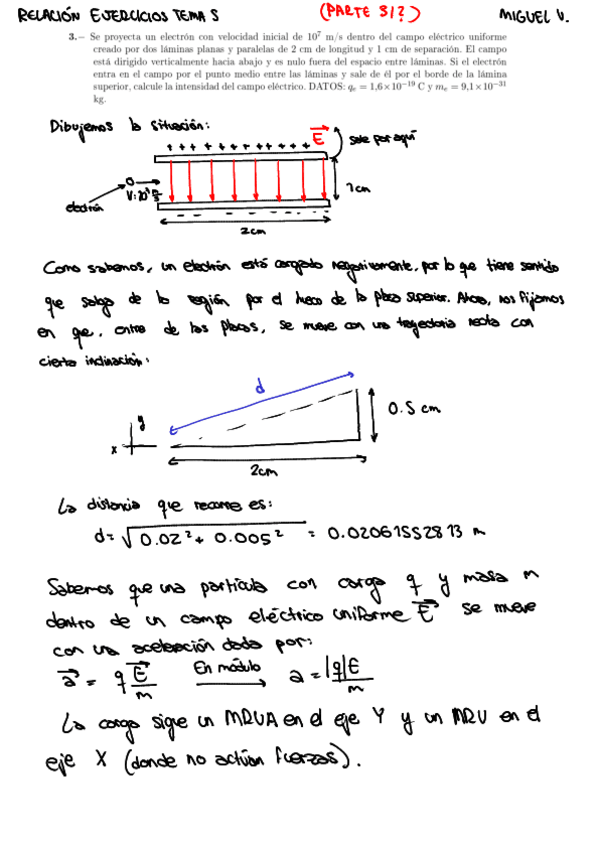 RELACIÓN EJERCICIOS TEMA 5 (PARTE 3/?) MIGUEL V.
3.– Se proyecta un electrón con velocidad inicial de 10⁷ m/s dentro del campo eléctrico uniforme
creado por dos láminas planas y paralelas de 2 cm de longitud y 1 cm de separación. El campo
está dirigido verticalmente hacia abajo y es nulo fuera del espacio entre láminas. Si el electrón
entra en el campo por el punto medio entre las láminas y sale de él por el borde de la lámina
superior, calcule la intensidad del campo eléctrico. DATOS: qₑ = 1,6×10⁻¹⁹ C y mₑ = 9,1×10⁻³¹
kg.
Dibujemos la situación:
E⃗ sale por aquí
+ + + + + + + + + + + +
1cm
electrón
2cm
Como sabemos, un electrón está cargado negativamente, por lo que tiene sentido
que salga de la región por el hueco de la placa superior. Ahora, nos fijamos
en que, entre de las placas, se mueve con una trayectoria recta con
cierta inclinación:
d
y
x
0.5 cm
2cm
La distancia que recorre es:
d = √0.02² + 0.005² = 0.02061552813 m
Sabemos que una partícula con carga q y masa m
dentro de un campo eléctrico uniforme E⃗ se mueve
con una aceleración dada por:
a⃗ = qE⃗/m En módulo a = |q|E/m
La carga sigue un MRUA en el eje Y y un MRU en el
eje X (donde no actúan fuerzas).